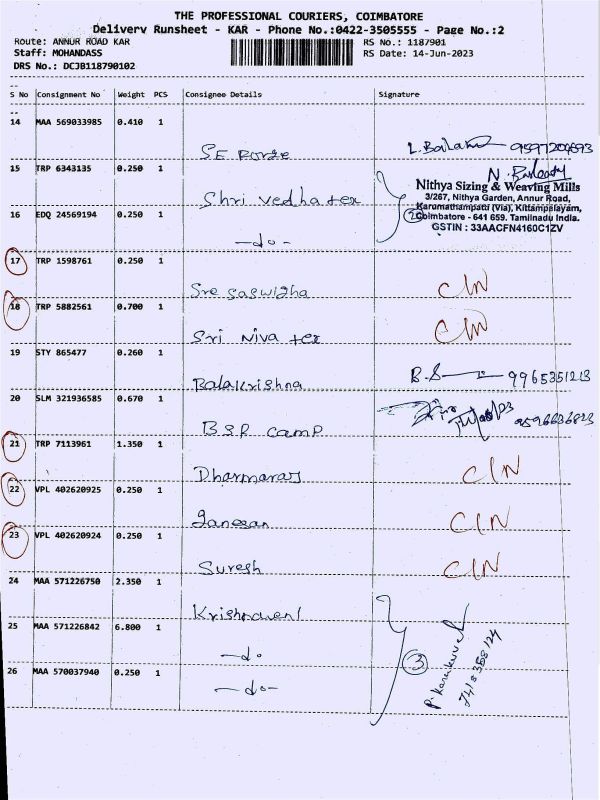 THE PROFESSIONAL COURIERS, COIMBATORE
Delivery Runsheet - KAR - Phone No.:0422-3505555 - Page No.:2
Route: ANNUR ROAD KAR RS No.: 1187901
Staff: MOHANDASS RS Date: 14-Jun-2023
DRS No.: DCJ0118790102
S No Consignment No Weight PCS Consignee Details Signature
14 MAA 569033985 0.410 1
SE Forge
15 TRP 6343135 0.250 1
Shri vedha tex
Nithya Sizing & Weaving Mills
3/267, Nithya Garden, Annur Road,
Karumathampatti (Via), Kittampalayam,
Coimbatore - 641 659. Tamilnadu India.
GSTIN : 33AACFN4160C1ZV
16 EDQ 24569194 0.250 1
2
-do-
17 TRP 1598761 0.250 1
Sre saswidha C/N
18 TRP 5882561 0.700 1
Sri Niva tex C/N
19 STY 865477 0.260 1
Balakrishna B.S 9965351213
20 SLM 321936585 0.670 1
BSR camp
21 TRP 7113961 1.350 1
Dharmaraj C/N
22 VPL 402620925 0.250 1
Ganesan C/N
23 VPL 402620924 0.250 1
Suresh C/N
24 MAA 571226750 2.350 1
Krishnaveni
25 MAA 571226842 6.800 1
-do- 3
26 MAA 570037940 0.250 1
-do-